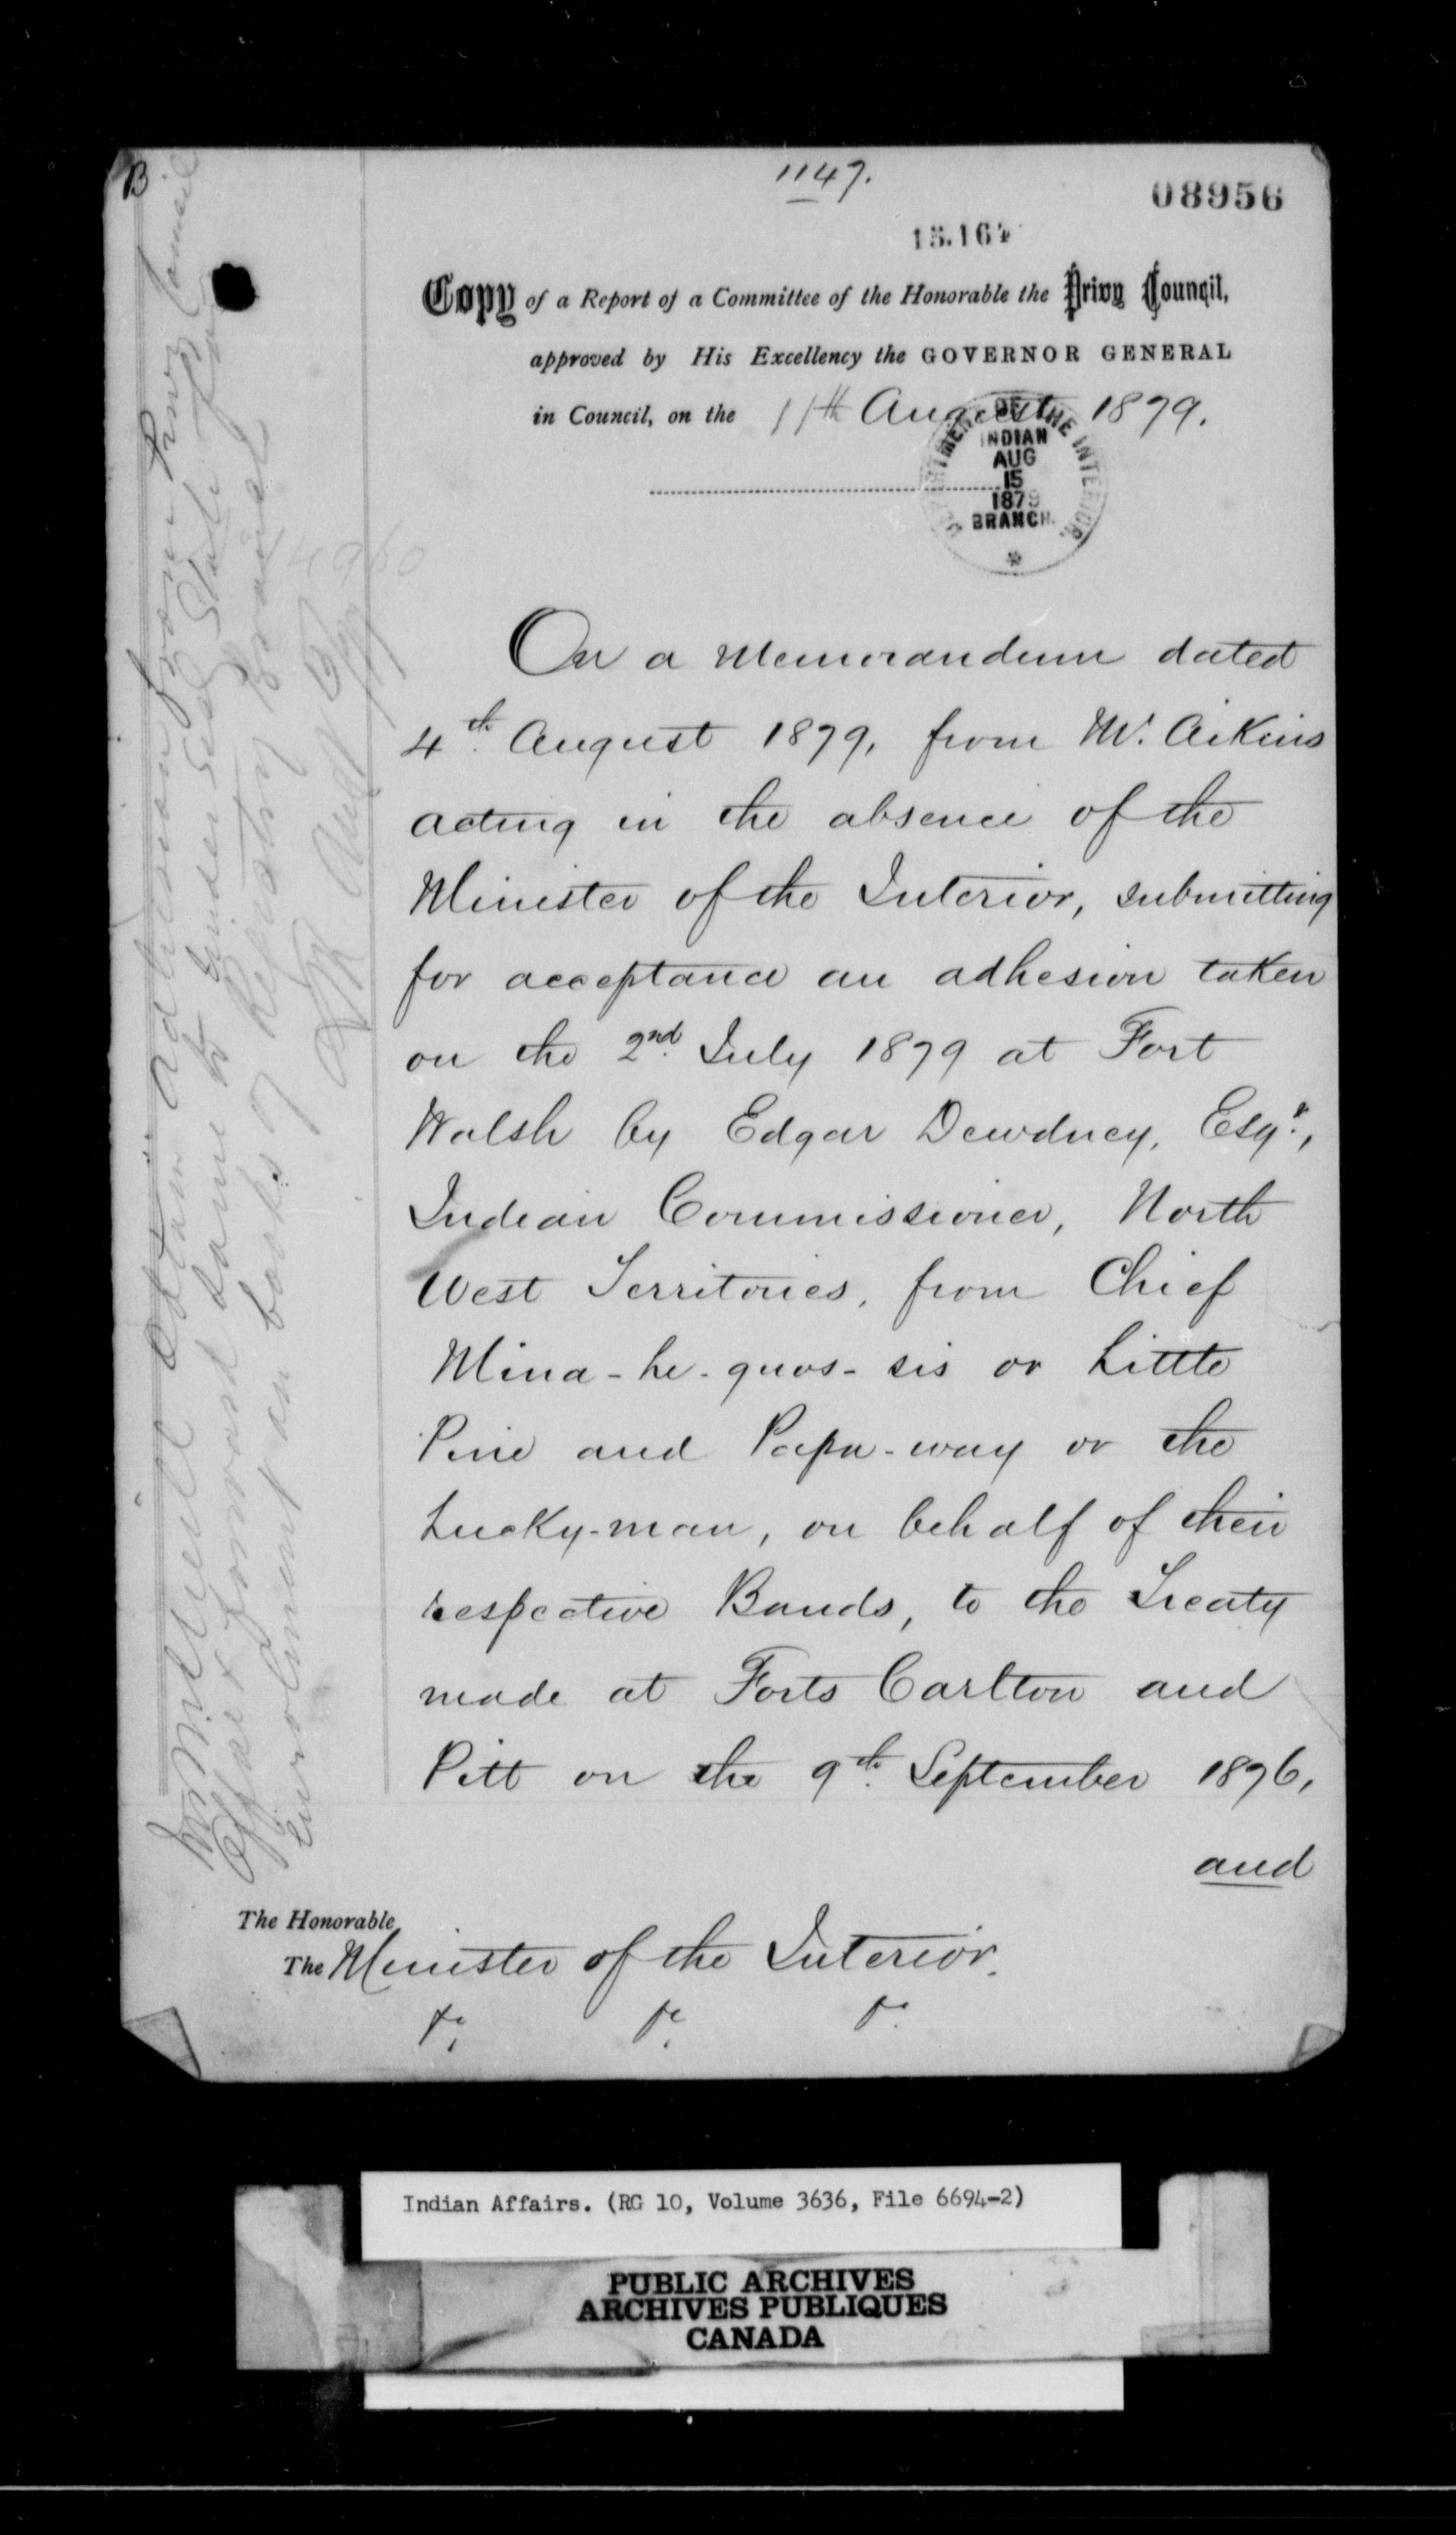 B
1147.
08956
15.164
Copy of a Report of a Committee of the Honorable the Privy Council,
approved by His Excellency the GOVERNOR GENERAL
in Council, on the 11th August 1879.
DEPARTMENT OF THE INTERIOR.
INDIAN
AUG
15
1879
BRANCH.
On a Memorandum dated
4th. August 1879, from Mr. Aikins
acting in the absence of the
Minister of the Interior, submitting
for acceptance an adhesion taken
on the 2nd. July 1879 at Fort
Walsh by Edgar Dewdney, Esqr.,
Indian Commissioner, North
West Territories, from Chief
Mina-he-quos-sis or Little
Pine and Papa-way or the
Lucky-man, on behalf of their
respective Bands, to the Treaty
made at Forts Carlton and
Pitt on the 9th. September 1876,
and
The Honorable
The Minister of the Interior.
Mr McNeill obtain adhesion from Privy Council
Office & forward same to Under Sec State for
Enrolment in books of Registry Branch
Indian Affairs. (RG 10, Volume 3636, File 6694-2)
PUBLIC ARCHIVES
ARCHIVES PUBLIQUES
CANADA